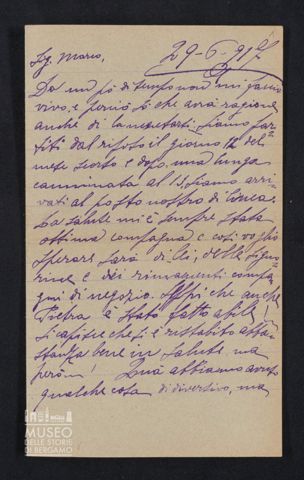 Sig. Marco,
29-6-917
Da un pò di tempo non mi faccio
vivo, e perciò sò che avrà ragione
anche di lamentarsi. Siamo par=
titi dal riposo il giorno 12 del
mese scorso e dopo una lunga
camminata al 13, siamo arri=
vati al posto nostro di
La salute mi è sempre stata
ottima compagna e così voglio
sperare sarà di Lei, delle Signo=
rine e dei rimanenti compa=
gni di negozio. Seppi che anche
Pietra è stato fatto abile!
Si capisce che si è ristabilito abba=
stanza bene in salute, ma
però...! Quà abbiamo avuto
qualche cosa di diversivo, ma
MUSEO
DELLE STORIE
DI BERGAMO